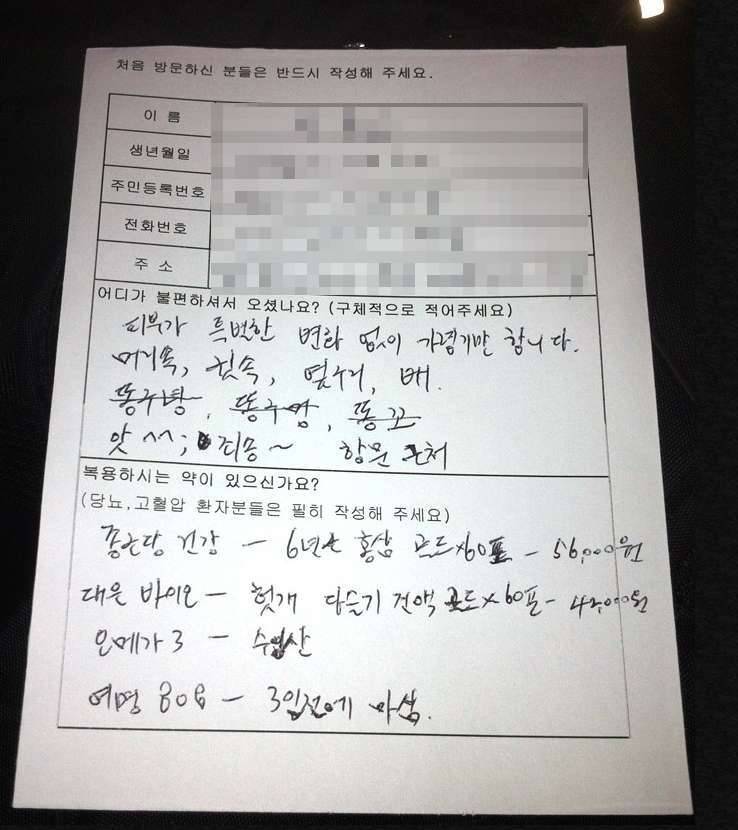 처음 방문하신 분들은 반드시 작성해 주세요.
이 름
생년월일
주민등록번호
전화번호
주 소
어디가 불편하셔서 오셨나요? (구체적으로 적어주세요)
피부가 특별한 변화 없이 가렵기만 합니다.
머리속, 귓속, 옆구리, 배.
똥구녕, 똥구멍, 똥꼬
앗 ^^; 죄송~ 항문 근처
복용하시는 약이 있으신가요?
(당뇨,고혈압 환자분들은 필히 작성해 주세요)
종근당 건강 - 6년근 홍삼 골드x60포 - 56,000원
대웅 바이오 - 헛개 다슬기 진액 골드x60포- 42,000원
오메가3 - 수입산
여명 808 - 3일전에 마심.